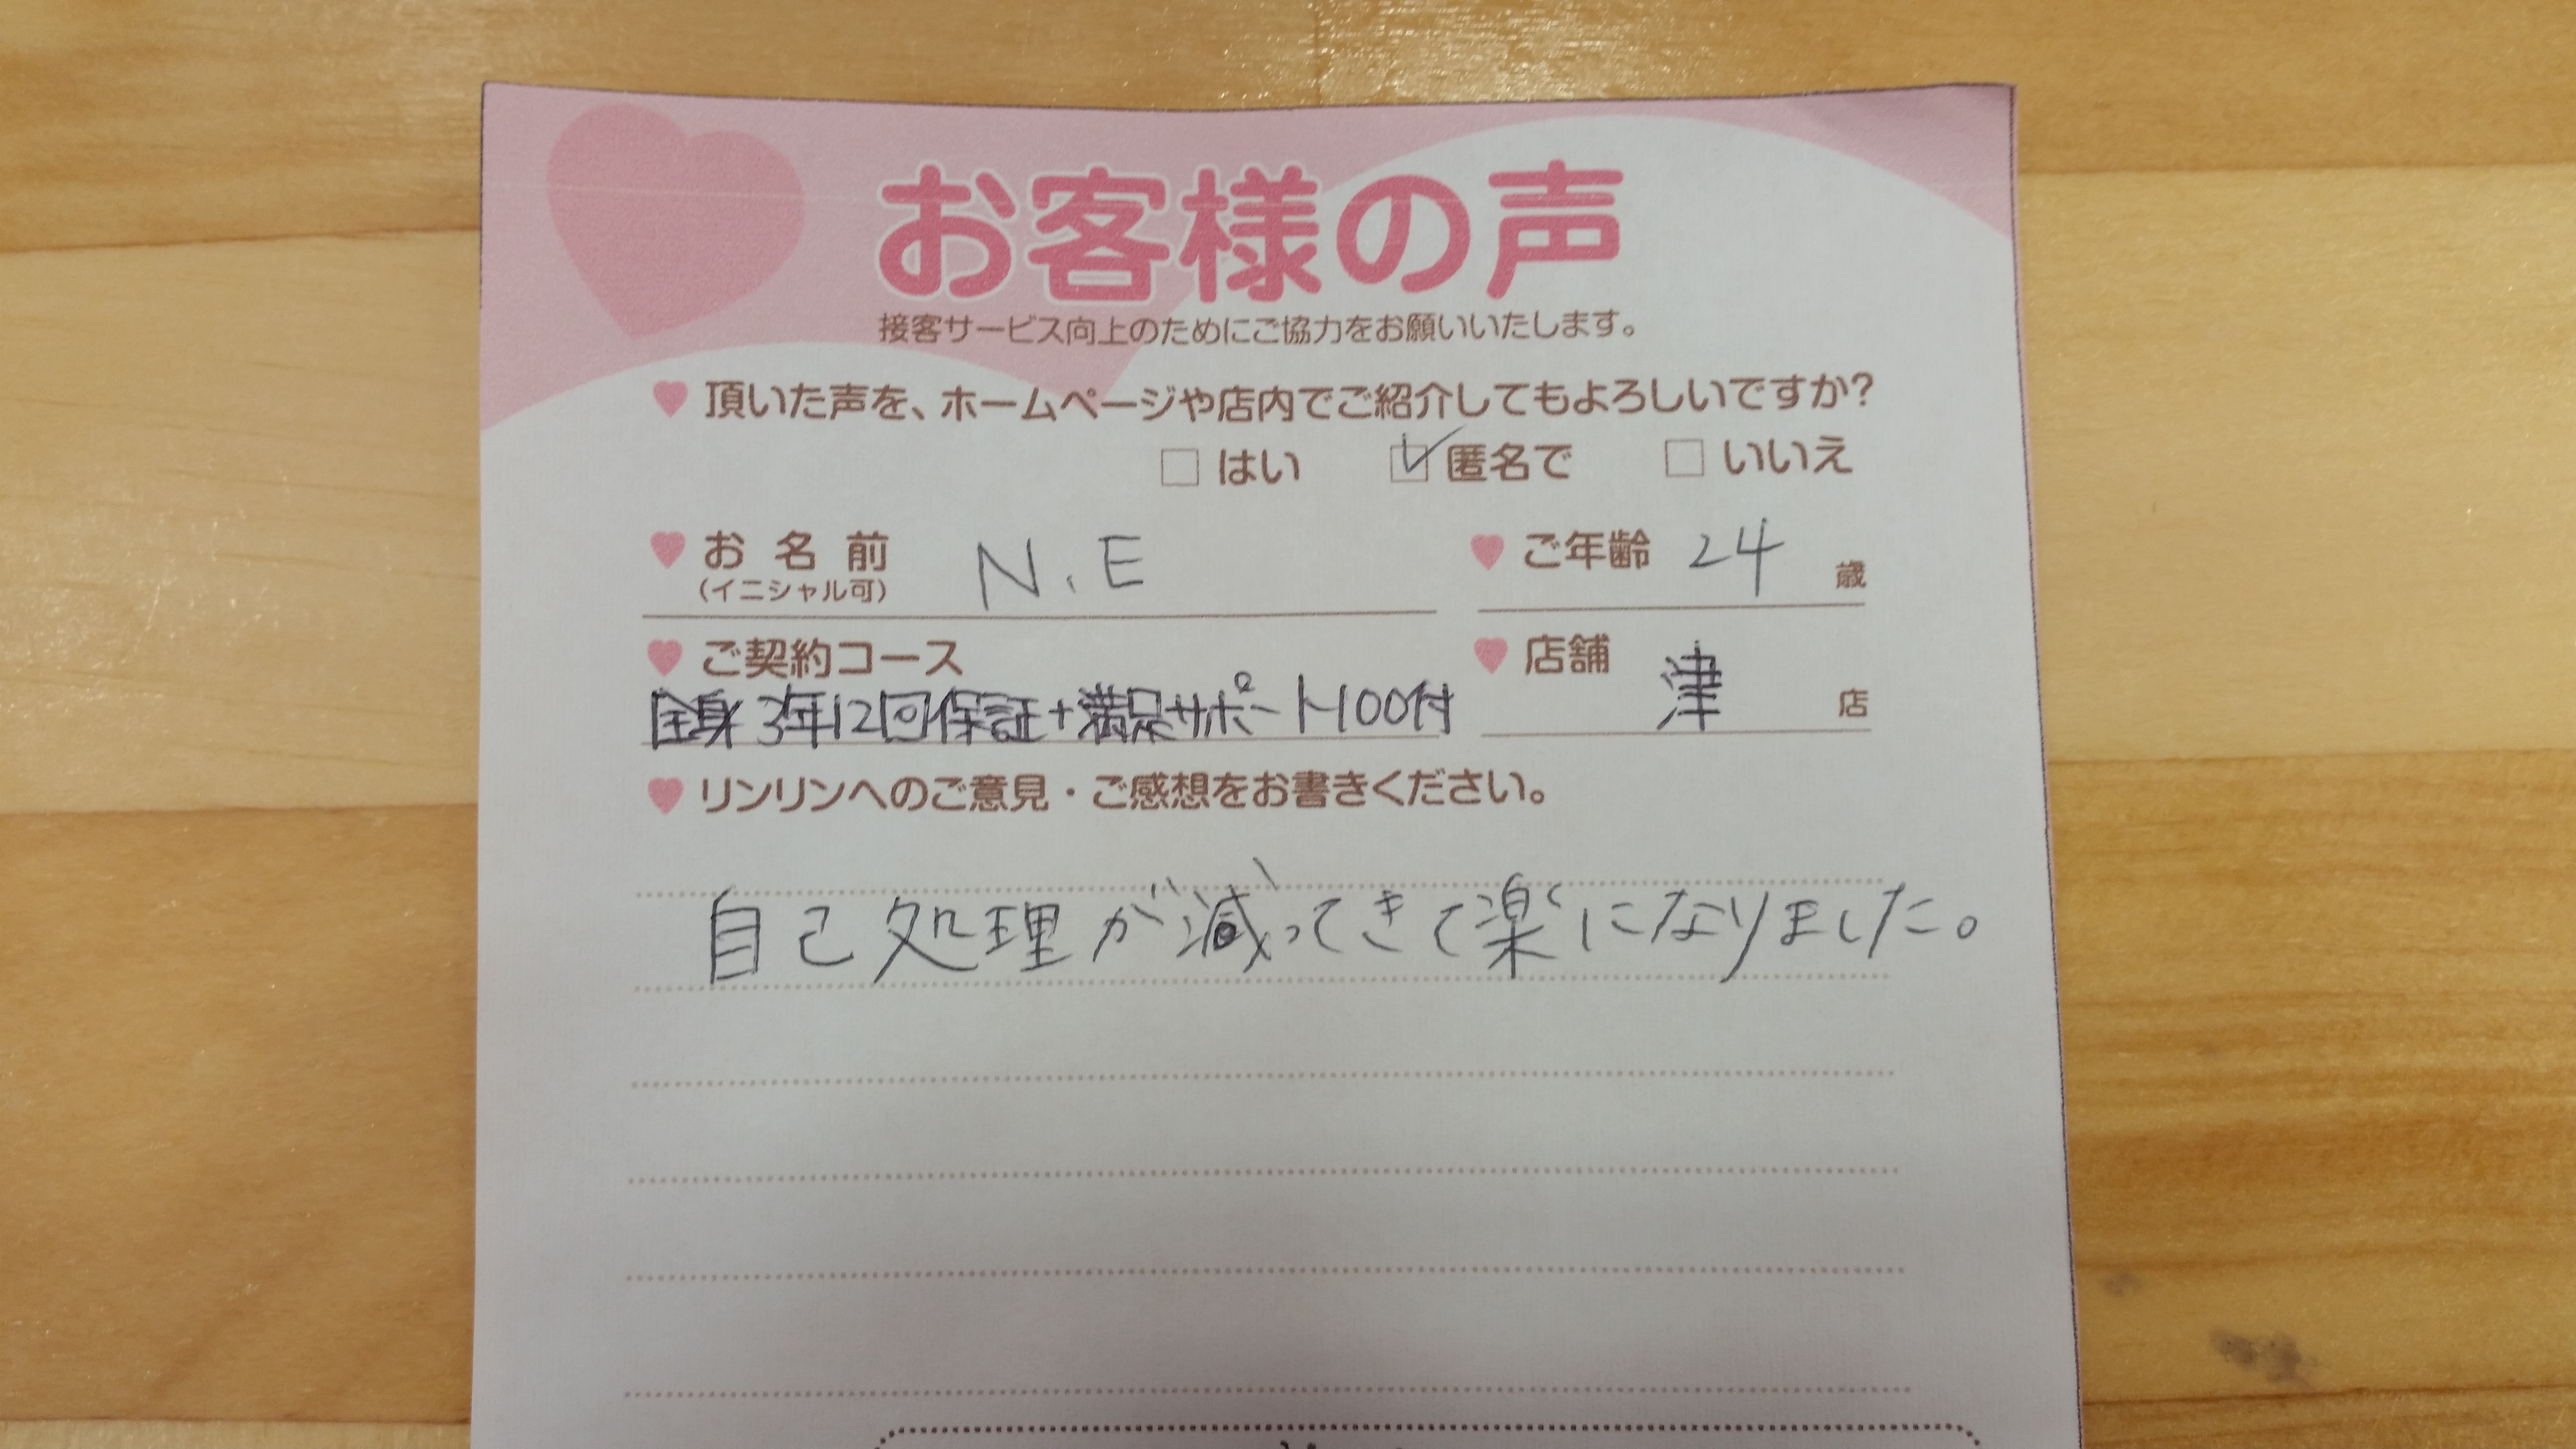 お客様の声
接客サービス向上のためにご協力をお願いいたします。
頂いた声を、ホームページや店内でご紹介してもよろしいですか?
はい 匿名で いいえ
お名前 N.E ご年齢 24 歳
(イニシャル可)
ご契約コース 店舗 津 店
全身3年12回保証+満足サポート100付
リンリンへのご意見・ご感想をお書きください。
自己処理が減ってきて楽になりました。